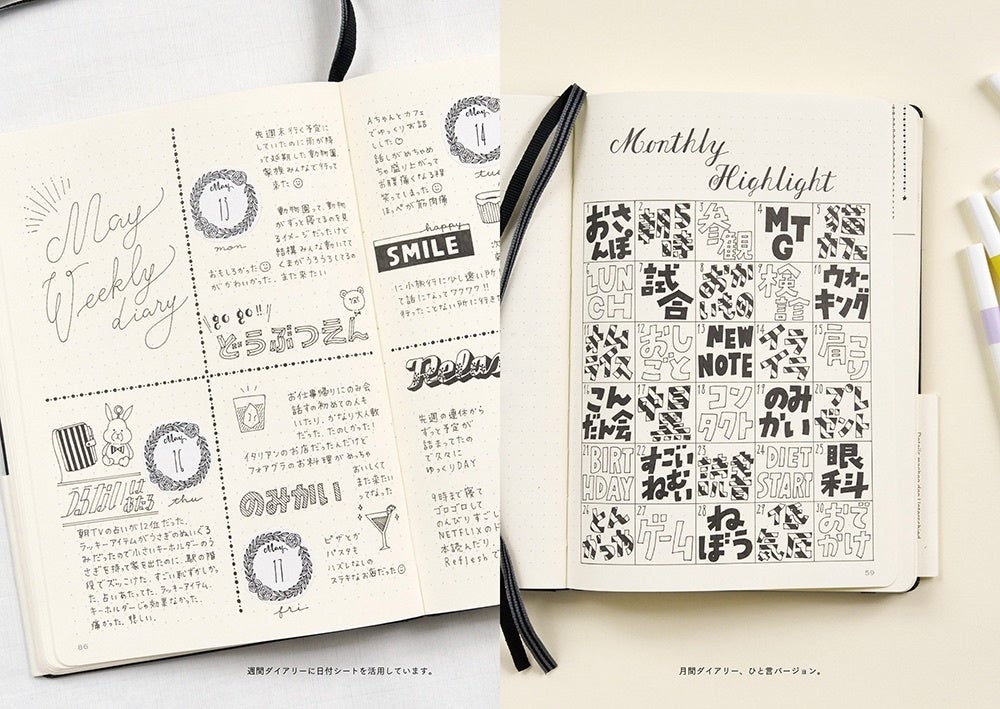 May
Weekly
diary
May
13
mon
先週末行く予定に
していたのに雨が降
って延期した動物園
家族みんなで行って
来た
動物園って、動物
がずっと寝てるのを見
るイメージだったけど
結構みんな動いてて
くまがうろうろしてるの
おもしろかった
がかわいかった。
また来たい
go go!!
どうぶつえん
Aちゃんとカフェ
でゆっくりお話
しした
話しがめちゃめ
ちゃ盛り上がって
お腹痛くなる程
笑ってしまった
ほっぺが筋肉痛
May
14
tue
happy
SMILE
に小旅行に少し遠い所
て話になってワクワク!!
行ったことない所に行き
Relax
May
16
thu
うらないは
あたる
朝TVの占いが12位だった。
ラッキーアイテムがうさぎのぬいぐる
みだったので小さいキーホルダーのう
さぎを持って家を出たのに、駅の階
段でズッこけた。すごい恥ずかしか
った。占いあたってた。ラッキーアイテム、
キーホルダーじゃ効果なかった。
痛かった。悲しい。
お仕事帰りにのみ会
話すの初めての人も
いたり、かなり大人数
だった。たのしかった!
イタリアンのお店だったんだけど
フォアグラのお料理がめっちゃ
おいしくて
また来たい
ってなった
のみかい
May
17
fri
ピザとか
パスタも
ハズレなしの
ステキなお店だった
先週の連休から
ずっと予定が
詰まってたの
で久々に
ゆっくりDAY
9時まで寝て
ゴロゴロして
のんびりすご
NETFLIXの
本読んだり
Refresh
86
週間ダイアリーに日付シートを活用しています。
Monthly
Highlight
おさんぽ
2 朝寝坊
参観
4 MTG
5 猫カフェ
6 LUNCH
7 試合
8 おかいもの
9 検診
10 ウォーキング
おしごと
13 NEW NOTE
14 イライラ
15 肩コリ
16 こんだん会
18 コンタクト
19 のみかい
20 プレゼント
21 BIRTHDAY
22 すごいねむい
23 読書
24 DIET START
25 眼科
26 とんかつ
27 ゲーム
28 ねぼう
29 低気圧
30 おでかけ
59
月間ダイアリー、ひと言バージョン。